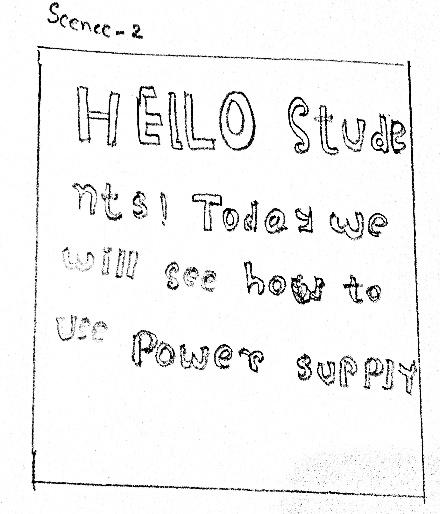 Scence-2
HEllO Stude
nts! Today we
will see how to
use Power supply